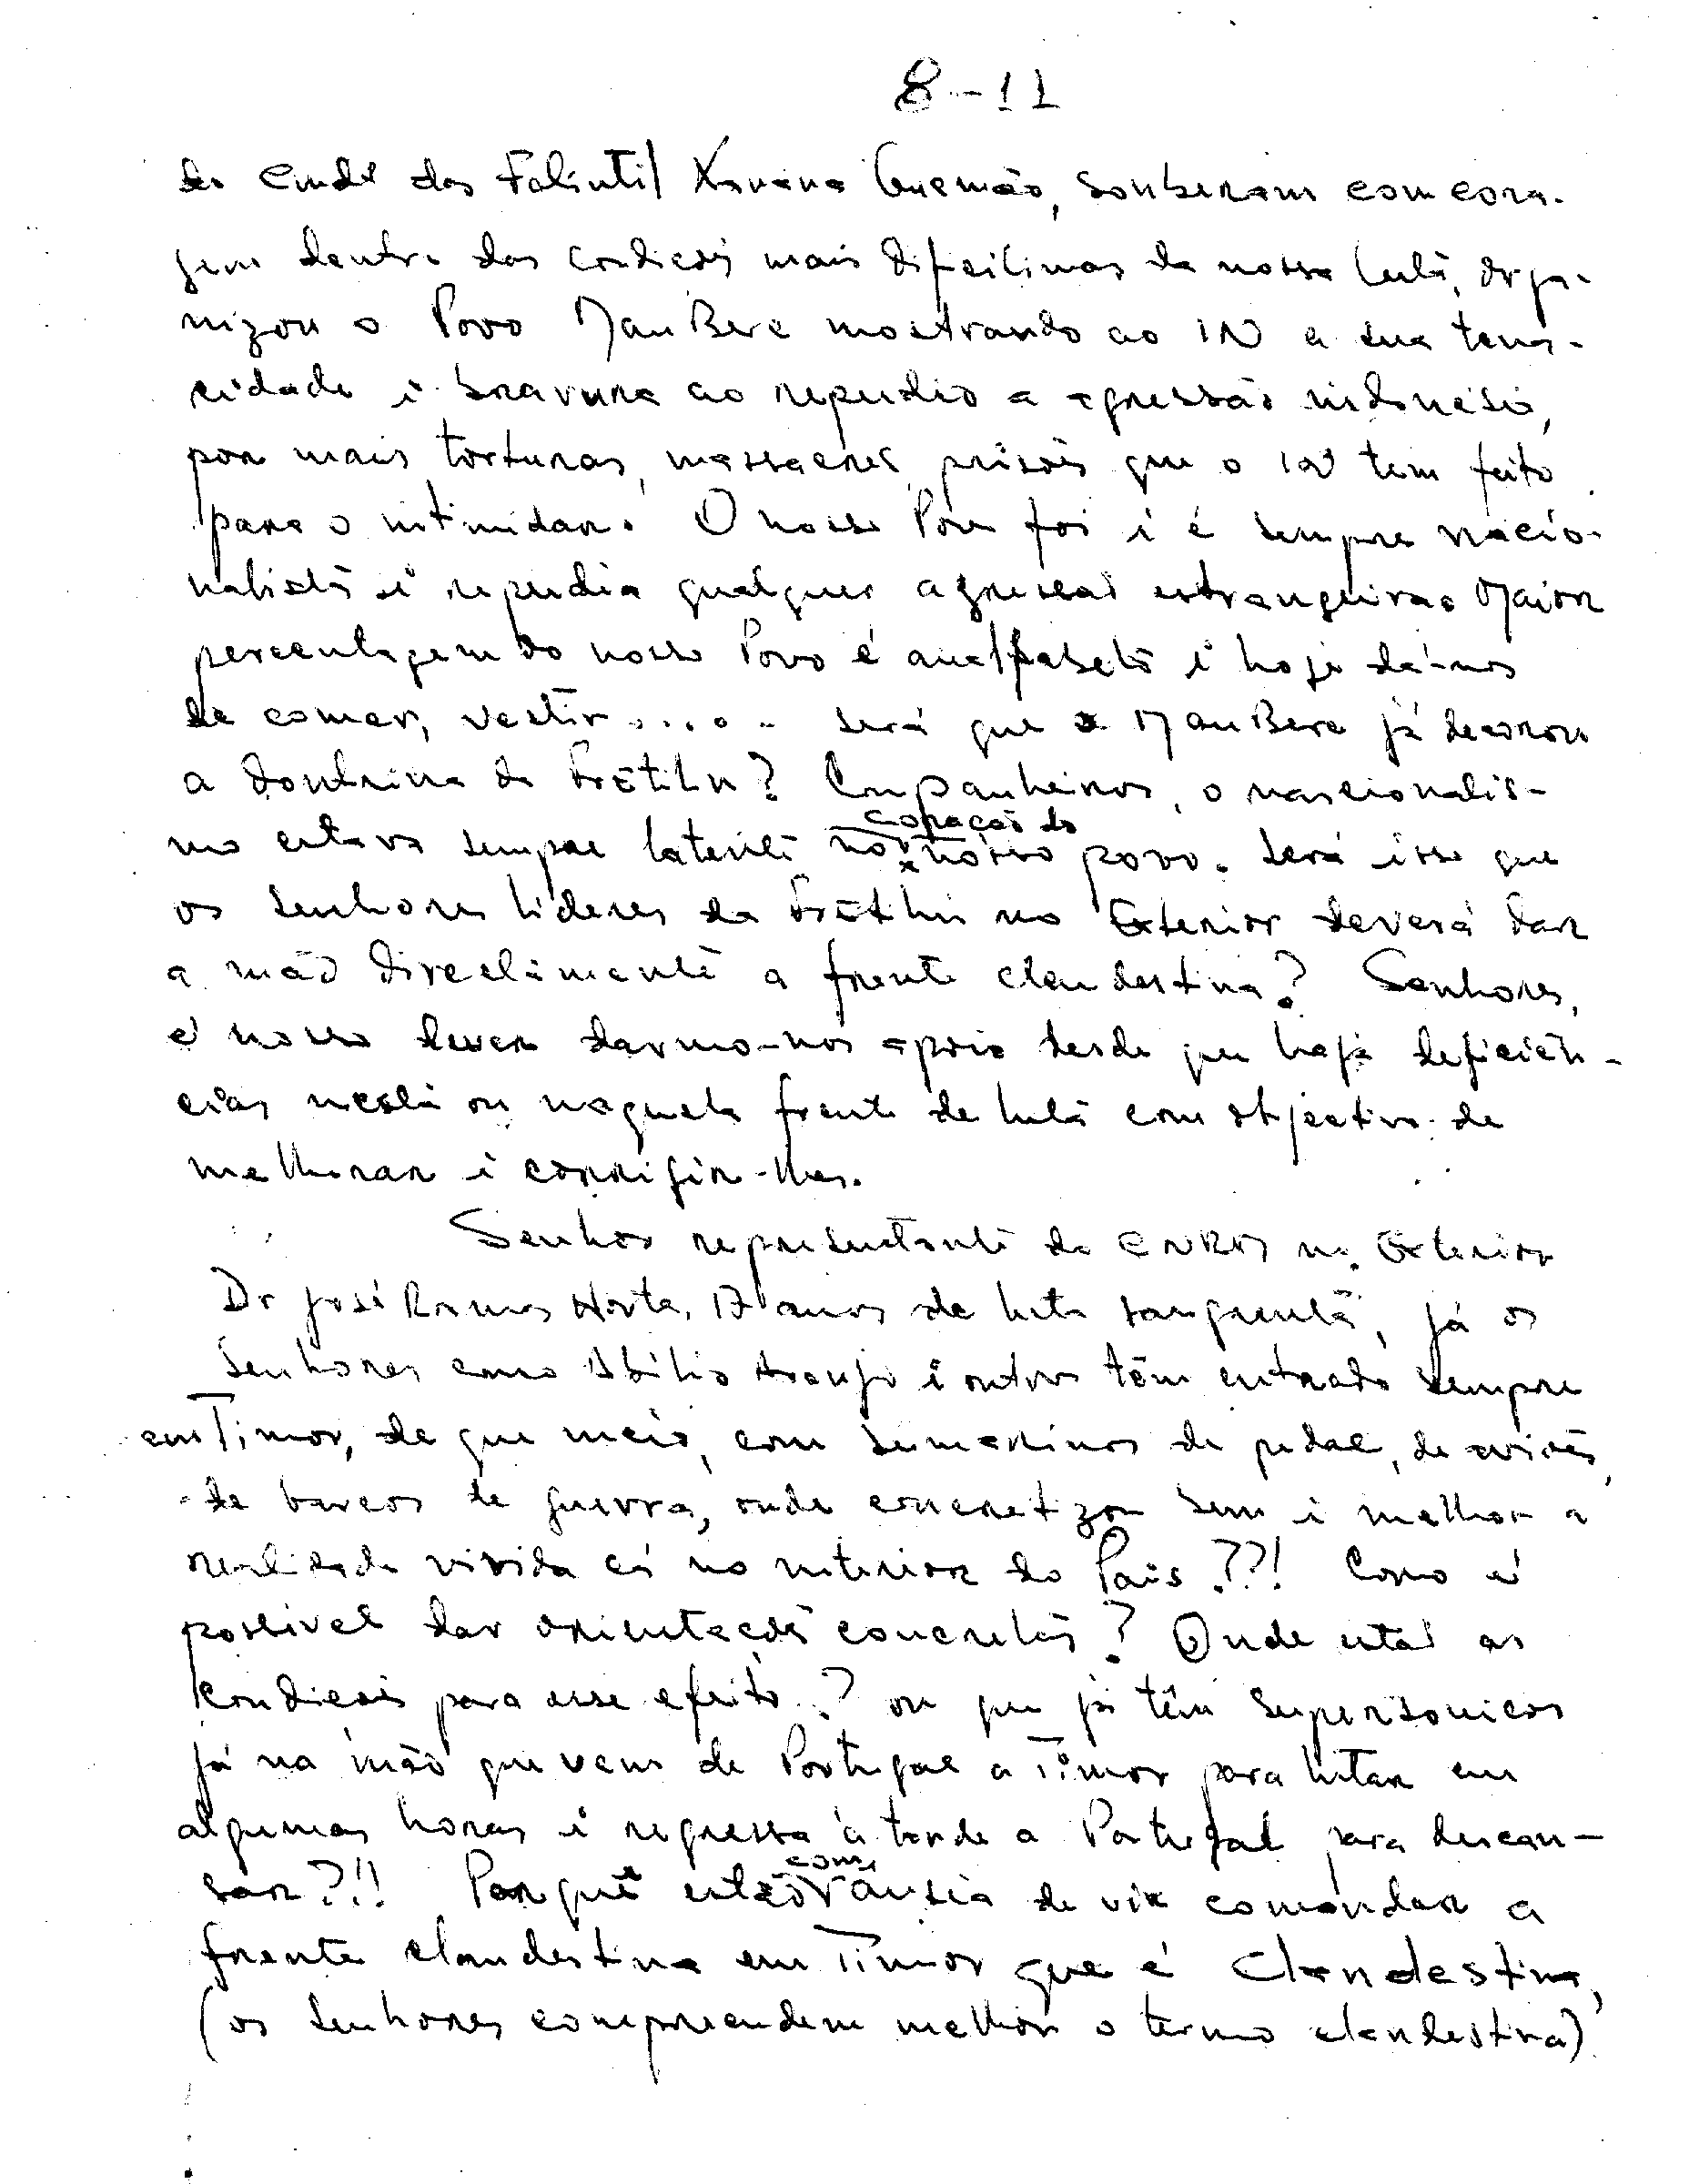 8-11
do Cmdt das Falintil Xanana Gusmão, souberam com cora-
gem dentro das condições mais dificilimas da nossa luta, orga-
nizou o Povo MauBere mostrando ao IN a sua tena-
cidade i bravura ao repudio a agressão indonésia,
por mais torturas, massacres, prisões que o IN tem feito
para o intimidar. O nosso Povo foi i é sempre nacio-
nalista i repudia qualquer agressão estrangeira. Maior
percentagem do nosso Povo é analfabeta i hoje dá-nos
de comer, vestir..... será que o MauBere já decorou
a doutrina da Frètilin? Companheiros, o nascionalis-
mo estava sempre latente no coração do nosso povo. Será isso que
os Senhores lideres da Frètilin no Exterior deverá dar
a mão directamente a frente clandestina? Senhores,
é nosso dever darmo-nos apoio desde que haja deficiên-
cias nesta ou naquela frente de luta com objectivo de
melhorar i corrigir-lhes.
Senhor representante do CNRM no Exterior
Dr José Ramos Horta, 17 anos de luta sangrenta, já os
Senhores como Abílio Araujo i outros têm entrado sempre
em Timor, de que meio, com sumarinos de pedal, de aviões,
de barcos de guerra, onde concretizou bem i melhor a
realidade vivida cá no interior do País??! Como é
possivel dar orientações concretas? Onde está as
condições para esse efeito? ou que já têm supersonicos
já na mão que vem de Portugal a Timor para lutar em
algumas horas i regressa à tarde a Portugal para descan-
sar?!! Porquê estão com ansia de vir comandar a
frente clandestina em Timor que é Clandestina,
(os Senhores compreendem melhor o termo clandestina)